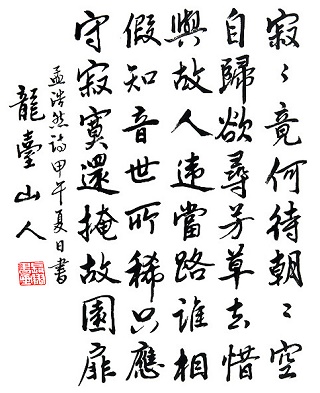 寂〻竟何待朝〻空
自歸欲尋芳草去惜
與故人違當路誰相
假知音世所稀只應
守寂寞還掩故園扉
孟浩然詩甲午夏日書
龍臺山人